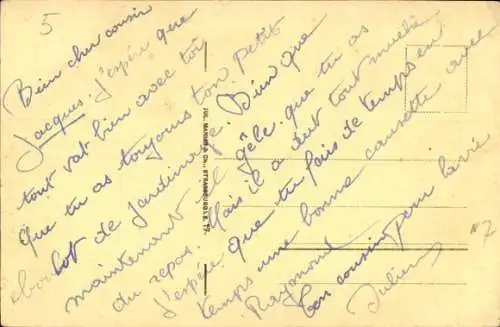 5
Bien cher cousin
Jacques. J'espère que
tout vat bien avec toi
que tu as toujours ton petit
boulot de jardinage. Bien que
maintenant il gèle que tu as
du repos. Mais il a dut tout
J'espère que tu fais de temps en
temps une bonne causette avec
Raymond
ton cousin pour la vie
Julien
JUL. MANIAS & Cie., STRASBOURG
2